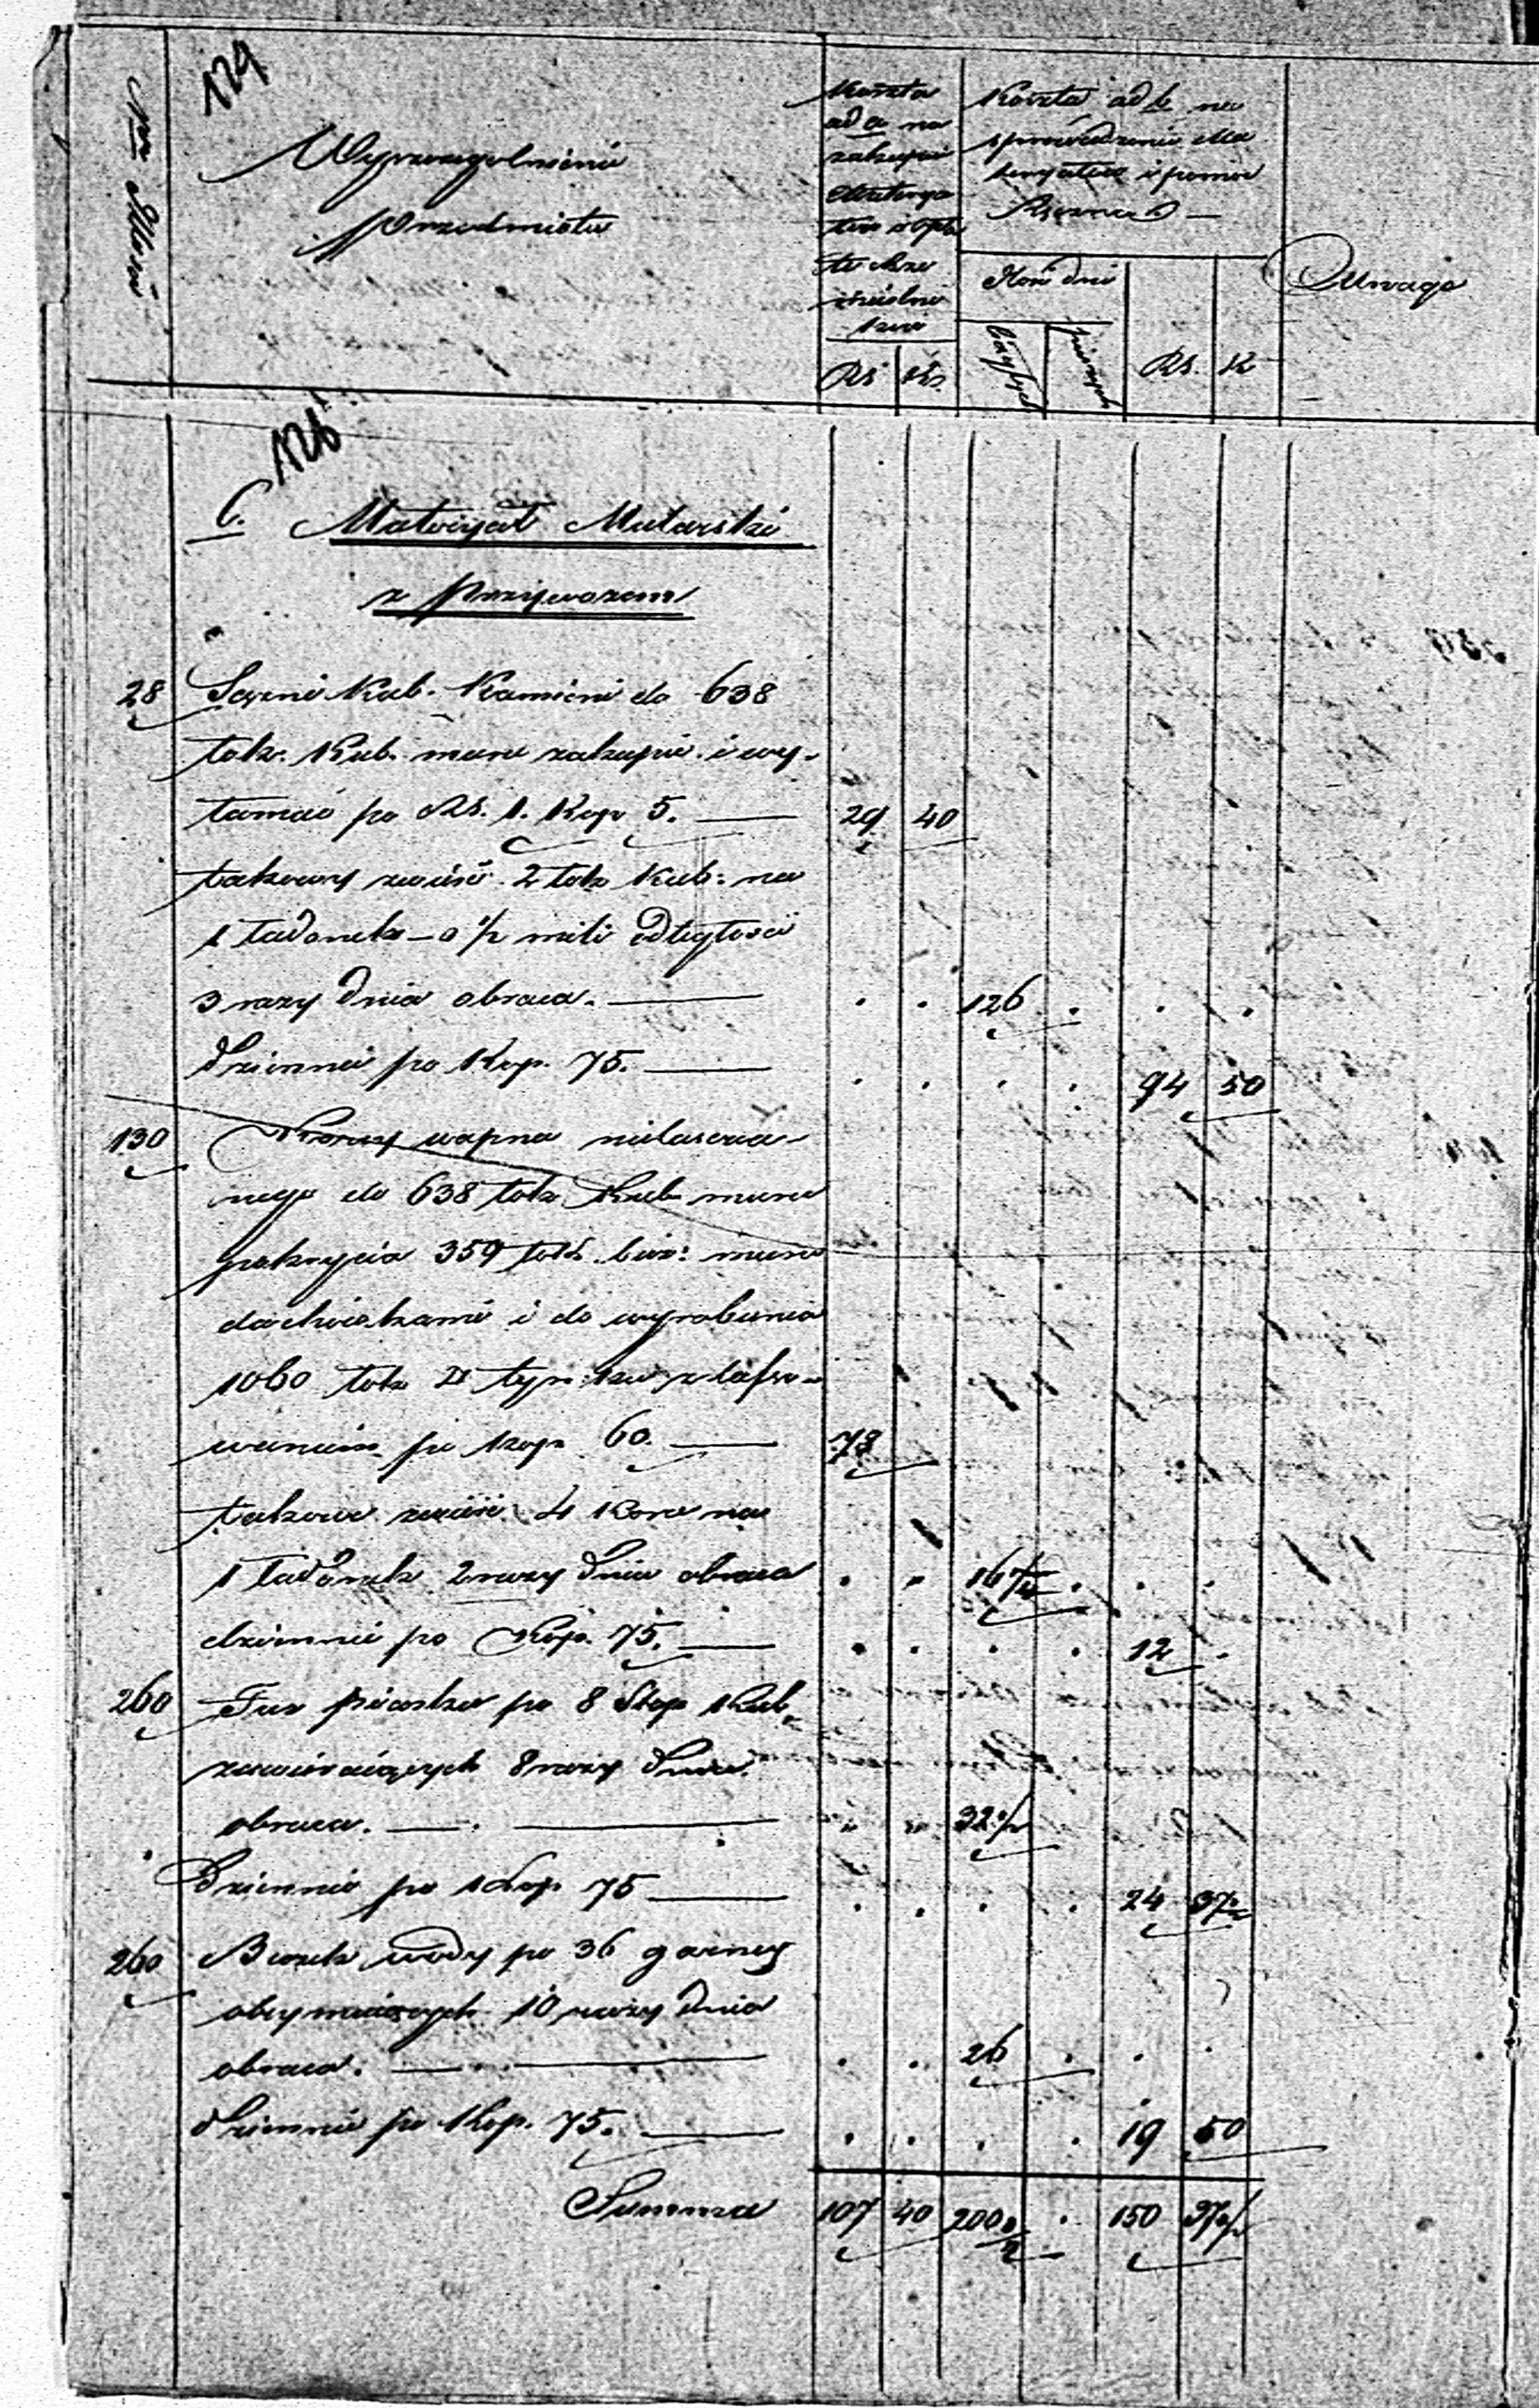 124
Wyszczególnienie
Przedmiotu
Koszta
ad a na
zakupie
Materya
Koszta ad b na
sprowadzenie Ma
teryałów i pomoc
Ręczna
Ilość dni
Uwaga
Ilość
Rs
K.
ciągłych
pieszych
Rs.
K
126
C. Materyał Mularski
z przywozem
28 Sążni Kub. Kamieni do 638
łok. Kub. muru zakupić i wy-
łamać po Rs. 1. Kop 5. 29 40
takowy zwieść 2 łok Kub: na
1 ładonek o ½ mili odległości
3 razy dnia obraca. 126
dziennie po Kop. 75. 94 50
130 Korcy wapna nielasowa-
nego do 638 łok Kub muru
pokrycia 359 łok. bież: muru
dachówkami i do wyrobienia
1060 łok □ tynku z
po kop 60. 78
takowe zwieść 4 Korce na
1 ładonek 2 razy dnia obraca 16
dziennie po Kop. 75. 12
260 Fur piasku po 8 Stop Kub.
zawierających 8 razy dnia
obraca. 32½
Dziennie po Kop 75 24 37½
260 Beczek wody po 36 garncy
obejmujących 10 razy dnia
obraca. 26
dziennie po Kop. 75. 19 50
Summa 107 40 200½ 150 37½